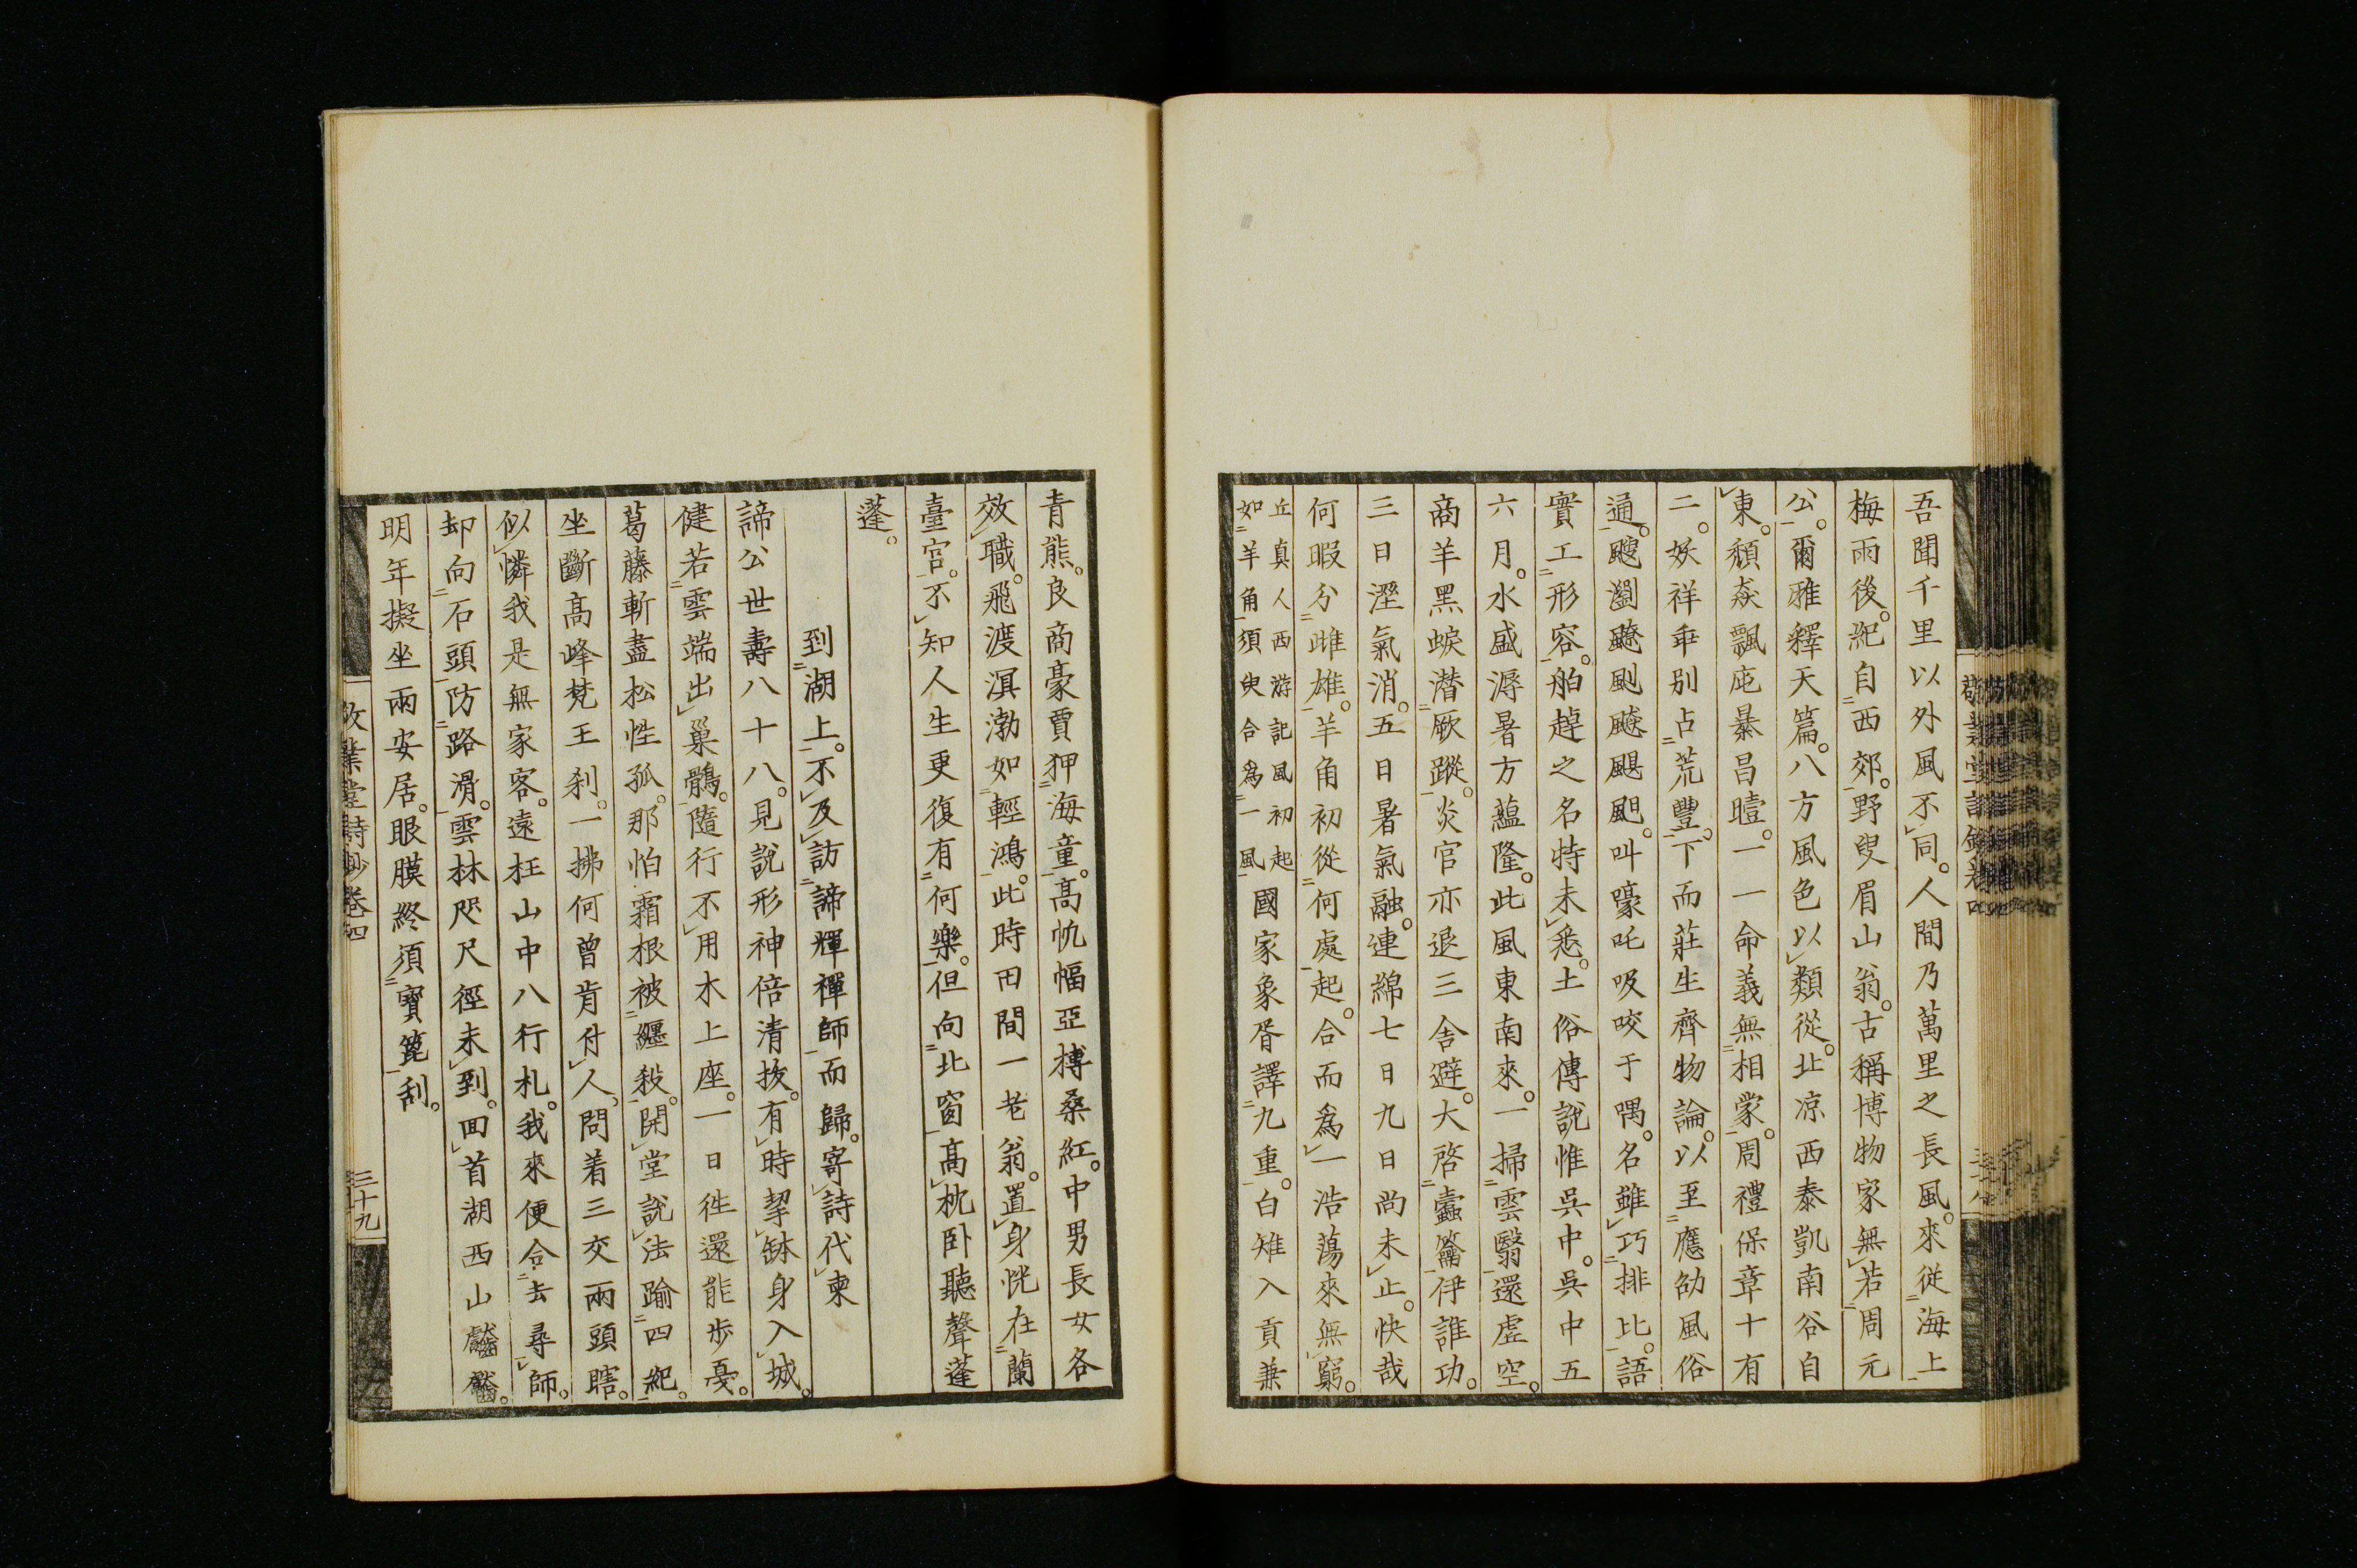 吾聞千里以外風不同。人間乃萬里之長風。來從海上
梅雨後。紀自西郊。野叟眉山翁。古稱博物家無若周元
公。爾雅釋天篇。八方風色以類從。北凉西泰凱南谷自
東。頽猋飄庉暴昌曀。一一命義無相蒙。周禮保章十有
二。妖祥乖别占荒豐。下而莊生齊物論。以至應劭風俗
通。叫嚎吒吸咬于喁。名雖巧排比。語
實工形容。舶趠之名特未悉。土俗傳說惟吳中。吳中五
六月。水盛溽暑方蘊隆。此風東南來。一掃雲翳還虛空。
商羊黑蜧潛厥蹤。炎官亦退三舍避。大啓蠹籥伊誰功。
三日溼氣消。五日暑氣融。連綿七日九日尚未止。快哉
何暇分雌雄。羊角初從何處起。合而爲一浩蕩來無窮。
丘真人西游記風初起
如羊角須臾合爲一風
國家象胥譯九重。白雉入貢兼
青熊。良商豪賈狎海童。高帆幅亞榑桑紅。中男長女各
效職。飛渡溟渤如輕鴻。此時田間一老翁。置身恍在蘭
臺宮。不知人生更復有何樂。但向北窗高枕卧聽聲蓬
蓬。
到湖上。不及訪諦輝禪師而歸。寄詩代柬
諦公世壽八十八。見說形神倍清拔。有時挈鉢身入城。
健若雲端出巢鶻。隨行不用木上座。一日徃還能步戞。
葛藤斬盡松性孤。那怕霜根被纒殺。開堂說法踰四紀。
坐斷高峰梵王刹。一拂何曾肯付人。問着三交兩頭瞎。
似憐我是無家客。遠枉山中八行札。我來便合去尋師。
却向石頭防路滑。雲林咫尺徑未到。回首湖西山
明年擬坐兩安居。眼膜終須寶篦刮。
敬業堂詩鈔卷四
三十九